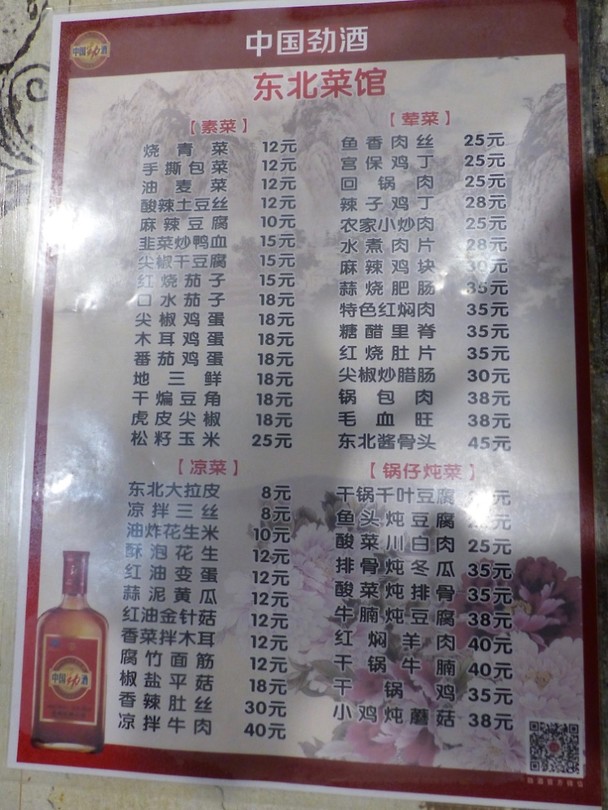 中国劲酒
中国劲酒
东北菜馆
【素菜】
烧青菜 12元
手撕包菜 12元
油麦菜 12元
酸辣土豆丝 12元
麻辣豆腐 10元
韭菜炒鸭血 15元
尖椒干豆腐 15元
红烧茄子 15元
口水茄子 18元
尖椒鸡蛋 18元
木耳鸡蛋 18元
番茄鸡蛋 18元
地三鲜 18元
干煸豆角 18元
虎皮尖椒 18元
松籽玉米 25元
【荤菜】
鱼香肉丝 25元
宫保鸡丁 25元
回锅肉 25元
辣子鸡丁 28元
农家小炒肉 25元
水煮肉片 28元
麻辣鸡块 30元
蒜烧肥肠 35元
特色红焖肉 35元
糖醋里脊 35元
红烧肚片 35元
尖椒炒腊肠 30元
锅包肉 38元
毛血旺 38元
东北酱骨头 45元
【凉菜】
东北大拉皮 8元
凉拌三丝 8元
油炸花生米 10元
酥泡花生 12元
红油变蛋 12元
蒜泥黄瓜 12元
红油金针菇 12元
香菜拌木耳 12元
腐竹面筋 12元
椒盐平菇 18元
香辣肚丝 30元
凉拌牛肉 40元
【锅仔炖菜】
干锅千叶豆腐 元
鱼头炖豆腐 元
酸菜川白肉 25元
排骨炖冬瓜 35元
酸菜炖排骨 35元
牛腩炖豆腐 38元
红焖羊肉 40元
干锅牛腩 40元
干锅鸡 35元
小鸡炖蘑菇 38元
中国劲酒